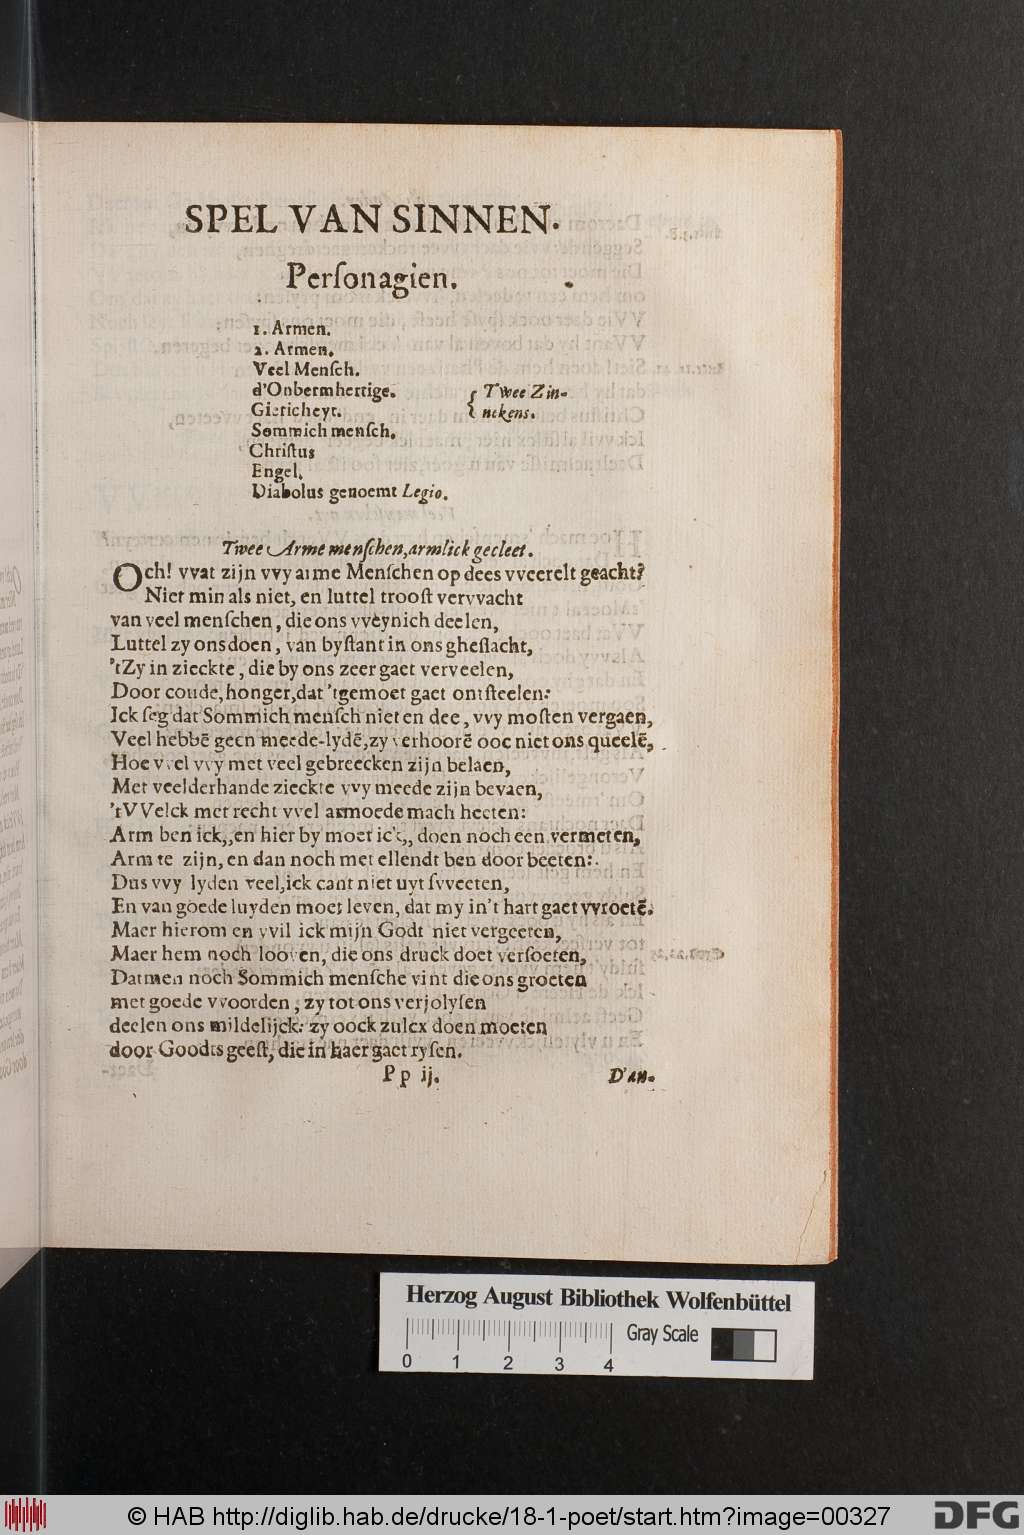 SPEL VAN SINNEN.
Perſonagien.
1. Armen.
2. Armen.
Veel Menſch.
d'Onbermhertige. { Twee Zin-
Giericheyt. nekens.
Sommich menſch.
Chriſtus
Engel.
Diabolus genoemt Legio.
Twee Arme menſchen, armlick gecleet.
Och! vvat zijn vvy arme Menſchen op dees vveerelt geacht?
Niet min als niet, en luttel trooſt vervvacht
van veel menſchen, die ons vveynich deelen,
Luttel zy ons doen, van byſtant in ons gheſlacht,
'tZy in zieckte, die by ons zeer gaet verveelen,
Door coude, honger, dat 'tgemoet gaet ontſteelen:
Ick ſeg dat Sommich menſch niet en dee, vvy moſten vergaen,
Veel hebbē geen meede-lydē, zy verhoorē ooc niet ons queelē,
Hoe vvel vvy met veel gebreecken zijn belaen,
Met veelderhande zieckte vvy meede zijn bevaen,
'tVVelck met recht vvel armoede mach heeten:
Arm ben ick,, en hier by moet ick,, doen noch een vermeten,
Arm te zijn, en dan noch met ellendt ben door beeten:
Dus vvy lyden veel, ick cant niet uyt ſvveeten,
En van goede luyden moet leven, dat my in't hart gaet vvroetē.
Maer hierom en vvil ick mijn Godt niet vergeeten,
Maer hem noch looven, die ons druck doet verſoeten,
Datmen noch Sommich menſche vint die ons groeten
met goede vvoorden, zy tot ons verjolyſen
deelen ons mildelijck: zy oock zulcx doen moeten
door Goodts geeſt, die in haer gaet ryſen.
Pp ij. D'an-
Herzog August Bibliothek Wolfenbüttel
Gray Scale
0 1 2 3 4
© HAB http://diglib.hab.de/drucke/18-1-poet/start.htm?image=00327 DFG